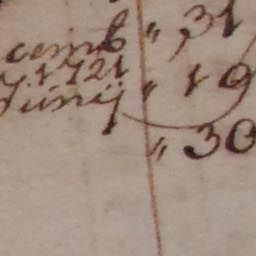 cemb " 31
1721 " 19
Junij " 30